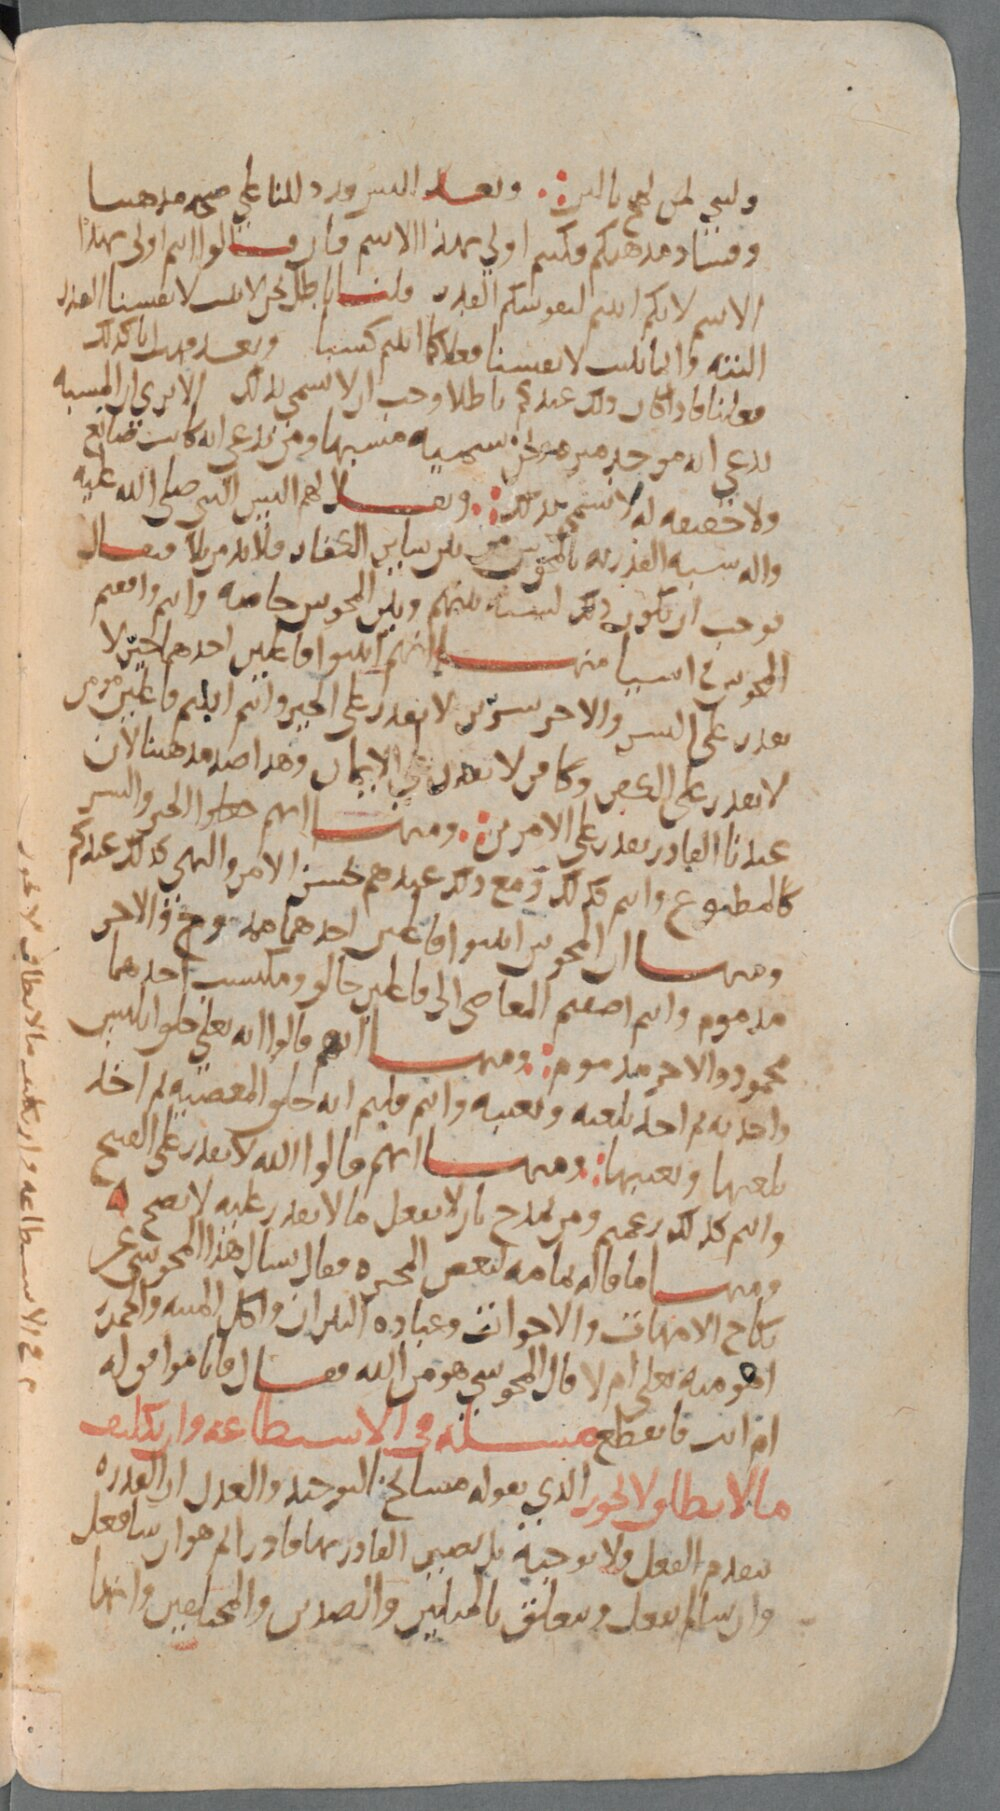 وليس لمن لهج بالدين وبعد اليس قد دللنا على صحة مذهبنا
وفساد مذهبكم فكنتم اولى بهذا الاسم فان قالوا انتم اولى بهذا
الاسم لانكم اثبتم لنفوسكم القدر قلنا باطل نحن لا نثبت لانفسنا القدر
البتة وانما نثبت لانفسنا فعلا كما اثبتم كسبا وبعد
فعلنا فاذا كان ذلك عندكم باطلا وجب ان لا نسمى بذلك الا ترى ان المشبه
يدعي انه موحد من سميه مشبها ومن يدعي انه كاتب صانع
ولا حقيقة له لا يسمى بذلك وبعد لا لهم اليس النبي صلى الله عليه
واله شبه القدرية بالمجوس من بين ساير الكفار فلا بد من بلا فقال
فوجب ان يكون ذلك لشبه بينهم وبين المجوس خاصة وانتم وافقتم
المجوس في اشيا منها انهم اثبتوا فاعلين احدهما خير لا
يقدر على الشر والاخر شرير لا يقدر على الخير وانتم اثبتم فاعلين مومن
لا يقدر على الكفر وكافر لا يقدر على الايمان وهذا ضد مذهبنا لان
عندنا القادر يقدر على الامرين ومنها انهم جعلوا الخير والشر
كالمطبوع وانتم كذلك ومع ذلك عندهم يحسن الامر والنهي كذلك عندكم
ومنها ان المجوس اثبتوا فاعلين احدهما ممدوح والاخر
مذموم وانتم اضفتم المعاصي الى فاعلين خالق ومكتسب احدهما
محمود والاخر مذموم ومنها انهم قالوا انه تعلى خلق ابليس
واحدثه ثم اخذ يلعنه ويعيبه وانتم قلتم انه خلق المعصية ثم اخذ
يلعنها ويعيبها ومنها انهم قالوا الله لا يقدر على القبيح
وانتم كذلك زعمتم ومن تمدح بان لا يفعل ما لا يقدر عليه لا يصح
ومنها ما قاله ثمامة لبعض المجبرة فقال سال هذا المجوسي عن
نكاح الامهات والاخوات وعبادة النيران واكل الميتة والخمر
اهو منه تعلى ام لا قال المجوسي هو من الله فقال فانا موافق له
ام انت فانقطع مسلة في الاستطاعة وان تكليف
ما لا يطاق لا يجوز الذي يقوله مشايخ التوحيد والعدل ان القدرة
تتقدم الفعل ولا توجبه بل يصير القادر بها قادرا لو هو ان شا فعل
وان شا لم يفعل وتتعلق بالمثلين والضدين والمختلفين وانها
م في الاستطاعة وان تكليف ما لا يطاق لا يجوز